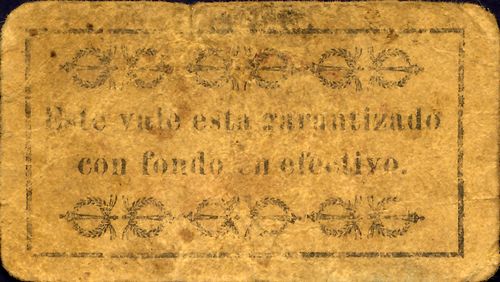 Este vale esta garantizado
con fondo en efectivo.